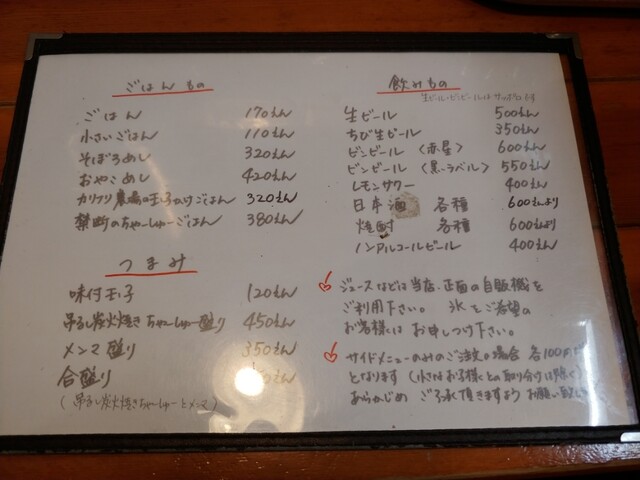 ごはんもの
ごはん 170えん
小さいごはん 110えん
そぼろめし 320えん
おやこめし 420えん
カリフリ農場の玉子かけごはん 320えん
禁断のちゃーしゅーごはん 380えん
つまみ
味付玉子 120えん
吊るし炭火焼きちゃーしゅー盛り 450えん
メンマ盛り 350えん
合盛り えん
(吊るし炭火焼きちゃーしゅーとメンマ)
飲みもの
生ビール・ビンビールはサッポロです
生ビール 500えん
ちび生ビール 350えん
ビンビール〈赤星〉 600えん
ビンビール〈黒・ラベル〉 550えん
レモンサワー 400えん
日本酒 各種 600えんより
焼酎 各種 600えんより
ノンアルコールビール 400えん
ジュースなどは当店正面の自販機を
ご利用下さい。 氷をご希望の
お客様はお申しつけ下さい。
サイドメニューのみのご注文の場合 各100円
となります(小さなお子様との取り分けは除く)
あらかじめ ご了承頂きますようお願い致し